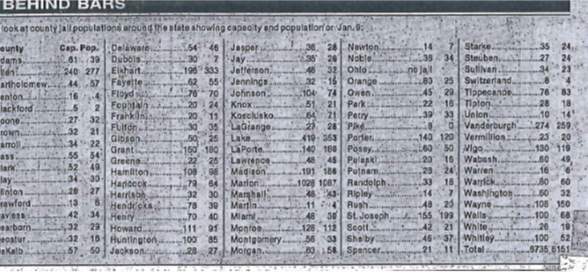 BEHIND BARS
look at county jail populations around the state showing capacity and population for Jan. 9:
ounty Cap. Pop.
dams 61 39
llen 240 277
artholomew 44 57
enton 16 4
lackford 5 2
oone 27 32
rown 32 21
arroll 34 22
ass 55 54
lark 52 49
lay 34 30
linton 28 27
rawford 13 6
aviess 42 34
earborn 32 29
ecatur 32 18
eKalb 57 50
Delaware 54 46
Dubois 30 7
Elkhart 196 333
Fayette 62 55
Floyd 76 70
Fountain 20 24
Franklin 20 11
Fulton 30 35
Gibson 50 25
Grant 150 180
Greene 22 25
Hamilton 108 98
Hancock 79 64
Harrison 32 30
Hendricks 78 39
Henry 70 40
Howard 111 91
Huntington 100 85
Jackson 28 27
Jasper 36 28
Jay 35 28
Jefferson 46 32
Jennings 32 21
Johnson 104 74
Knox 51 21
Kosciusko 64 71
LaGrange 27 28
Lake 419 353
LaPorte 140 180
Lawrence 48 45
Madison 191 188
Marion 1028 1087
Marshall 48 43
Martin 11 4
Miami 48 38
Monroe 128 112
Montgomery 56 33
Morgan 83 58
Newton 14 7
Noble 36 34
Ohio no jail
Orange 80 25
Owen 45 29
Park 22 16
Perry 39 33
Pike 8 0
Porter 140 120
Posey 60 50
Pulaski 20 16
Putnam 28 24
Randolph 33 18
Ripley 14 7
Rush 48 20
St. Joseph 155 199
Scott 42 21
Shelby 46 37
Spencer 21 11
Starke 35 24
Steuben 27 24
Sullivan 34 23
Switzerland 8 4
Tippecanoe 76 83
Tipton 28 18
Union 10 14
Vanderburgh 274 259
Vermillion 20
Vigo 130 119
Wabash 60 49
Warren 16 6
Warrick 60 60
Washington 50 32
Wayne 108 150
Wells 100 68
White 26 19
Whitley 100 52
Total 6735 6151